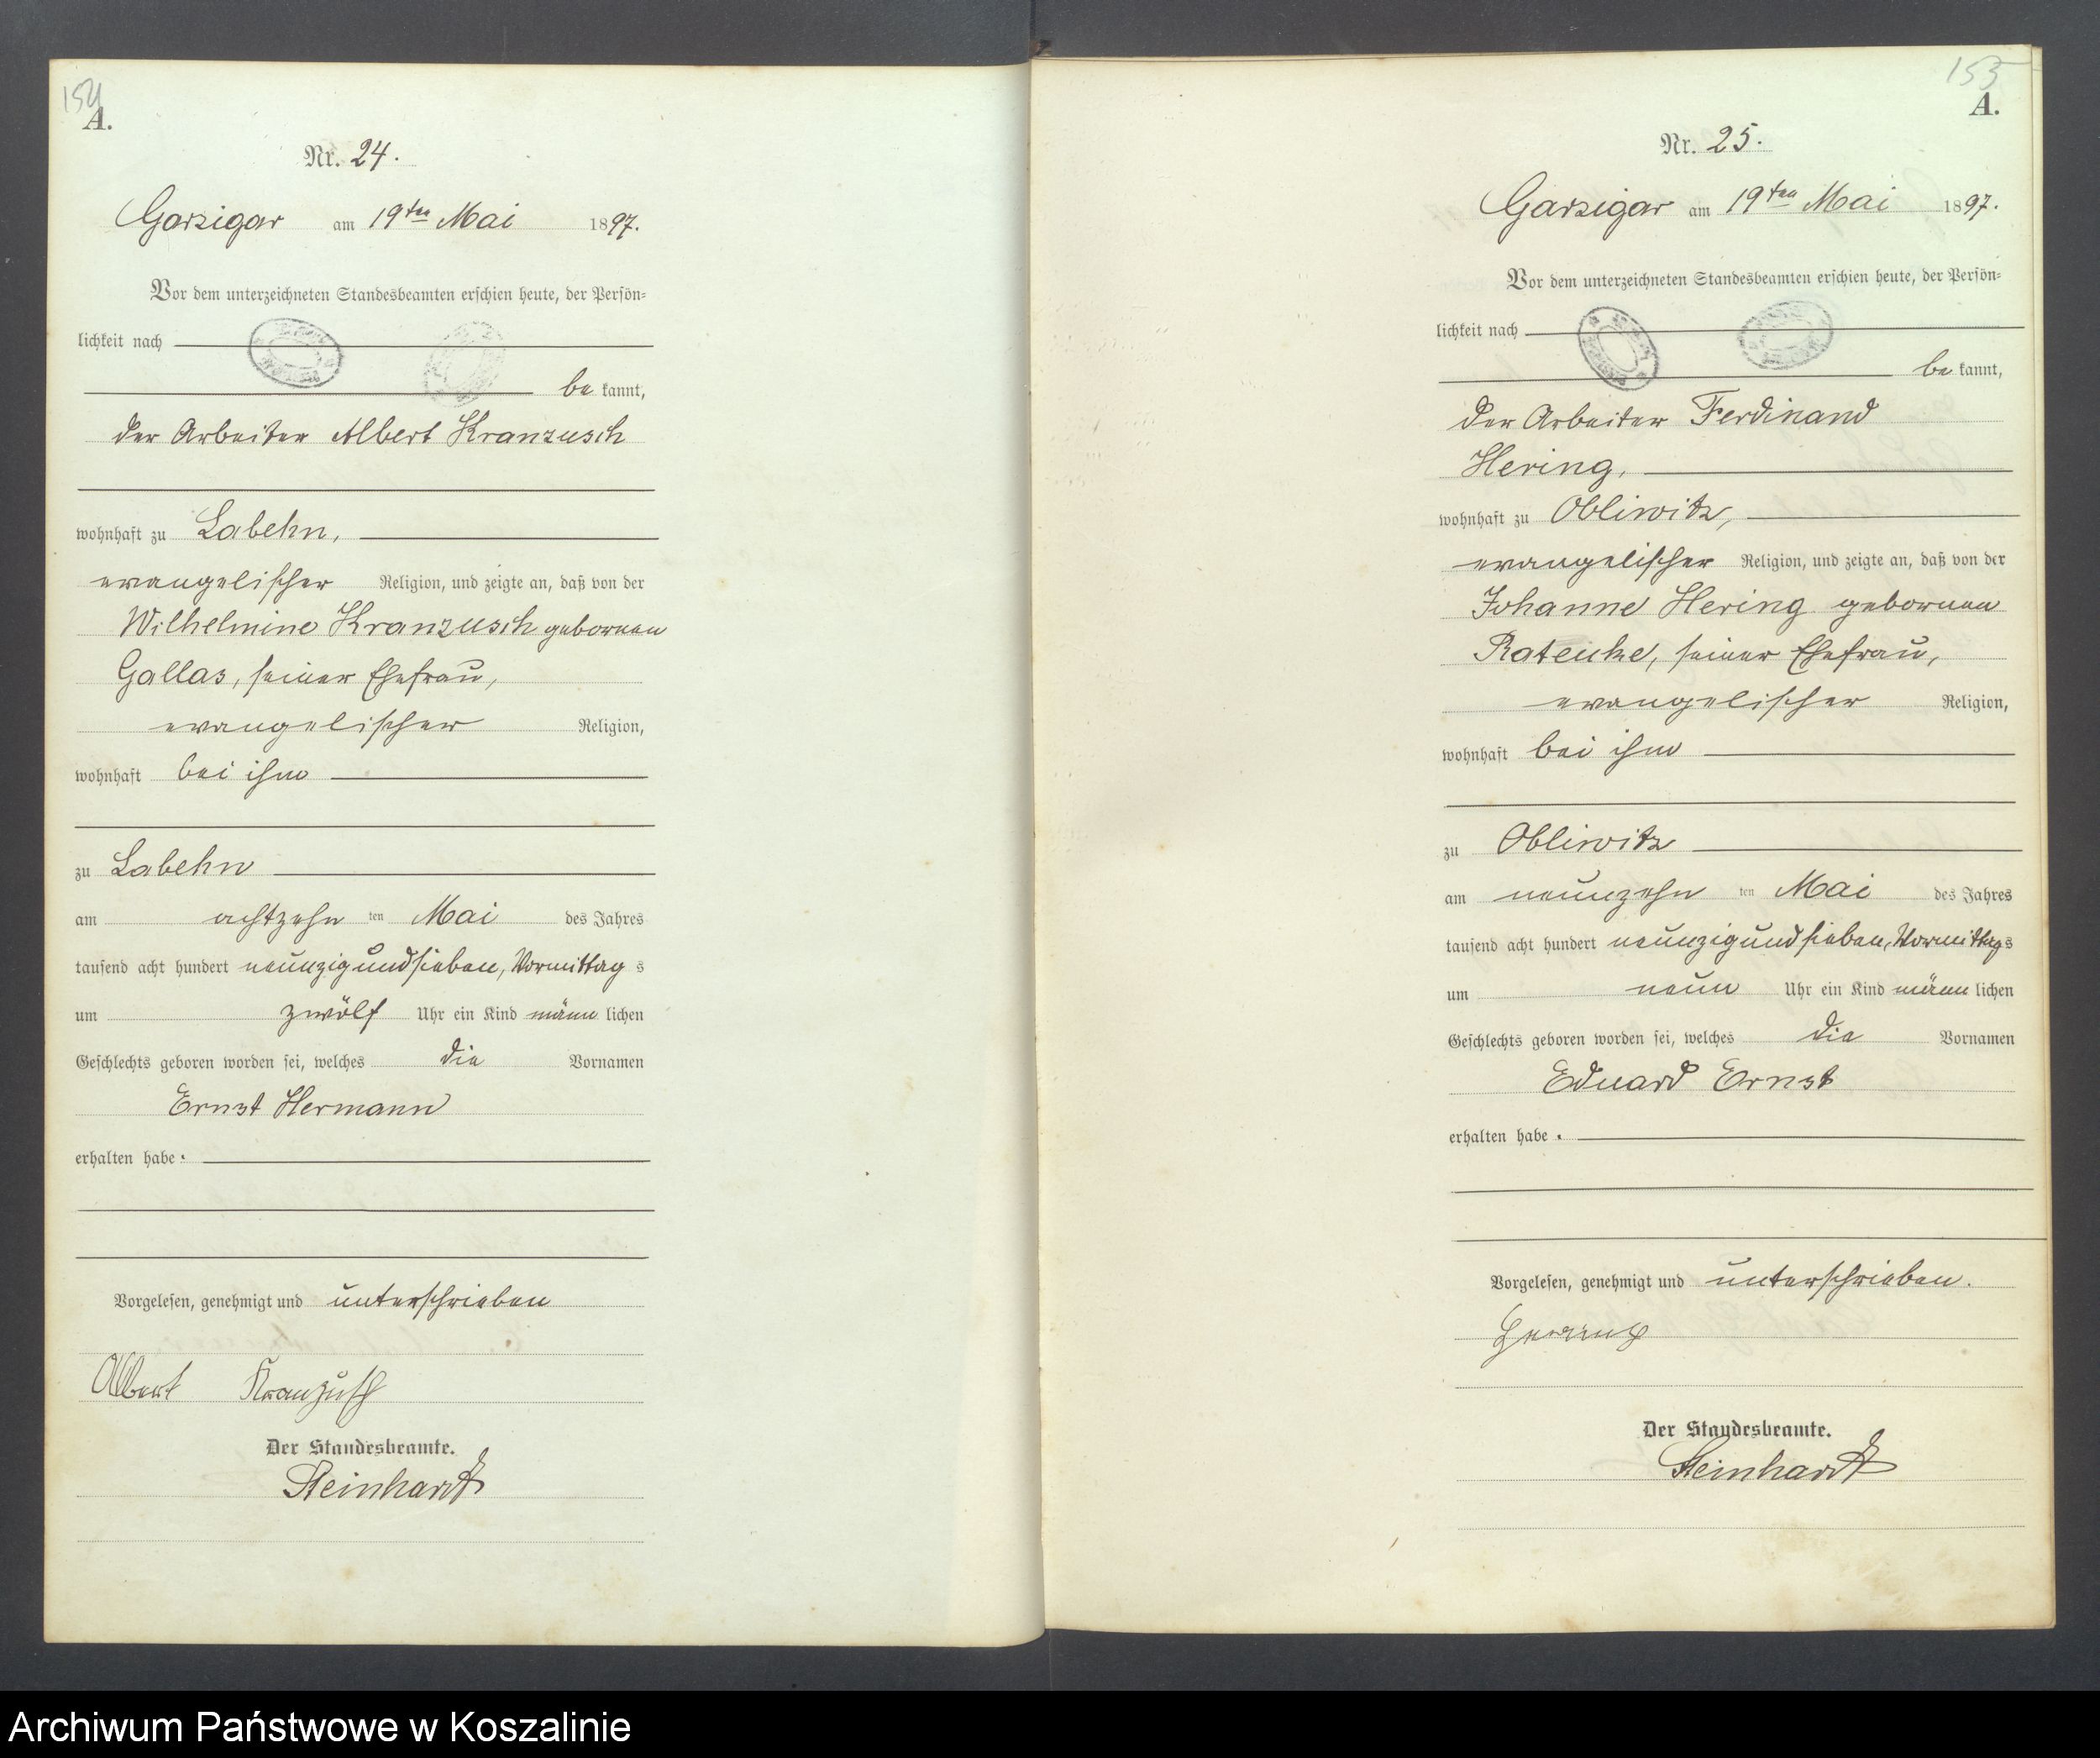 154
A.
Nr. 24.
Garzigar am 19ten Mai 1897.
Vor dem unterzeichneten Standesbeamten erschien heute, der Persön-
lichkeit nach
be kannt,
der Arbeiter Albert Kranzusch
wohnhaft zu Labehn,
evangelischer Religion, und zeigte an, daß von der
Wilhelmine Kranzusch gebornen
Gallas, seiner Ehefrau,
evangelischer Religion,
wohnhaft bei ihm
zu Labehn
am achtzehn ten Mai des Jahres
tausend acht hundert neunzigundsieben, Vormittag s
um zwölf Uhr ein Kind männ lichen
Geschlechts geboren worden sei, welches die Vornamen
Ernst Hermann
erhalten habe.
Vorgelesen, genehmigt und unterschrieben
Albert Kranzusch
Der Standesbeamte.
Steinhardt
155
A.
Nr. 25.
Garzigar am 19ten Mai 1897.
Vor dem unterzeichneten Standesbeamten erschien heute, der Persön-
lichkeit nach
be kannt,
der Arbeiter Ferdinand
Hering,
wohnhaft zu Obliwitz,
evangelischer Religion, und zeigte an, daß von der
Johanne Hering gebornen
Rateike, seiner Ehefrau,
evangelischer Religion,
wohnhaft bei ihm
zu Obliwitz
am neunzehn ten Mai des Jahres
tausend acht hundert neunzigundsieben, Vormittags
um neun Uhr ein Kind männ lichen
Geschlechts geboren worden sei, welches die Vornamen
Eduard Ernst
erhalten habe.
Vorgelesen, genehmigt und unterschrieben.
Der Standesbeamte.
Steinhardt
Archiwum Państwowe w Koszalinie